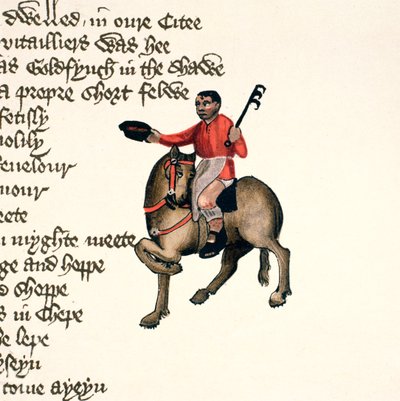 dwelled, in oure Citee
vitailliers was hee
as Goldfynch in the shawe
a propre short felawe
fetisly
olily
euelour
mour
eete
myghte meete
ge and hoppe
shoppe
s in Chepe
he lepe
yseyn
come ayeyn